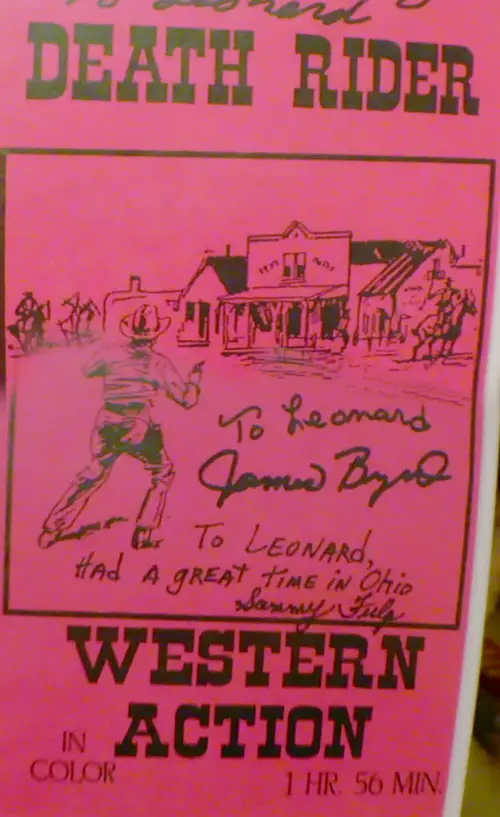 To Leonard
DEATH RIDER
To Leonard
James Byrd
To LEONARD,
HAd A gREAT TIME IN Ohio
Sammy Fulp
WESTERN
ACTION
IN
COLOR
1 HR. 56 MIN.